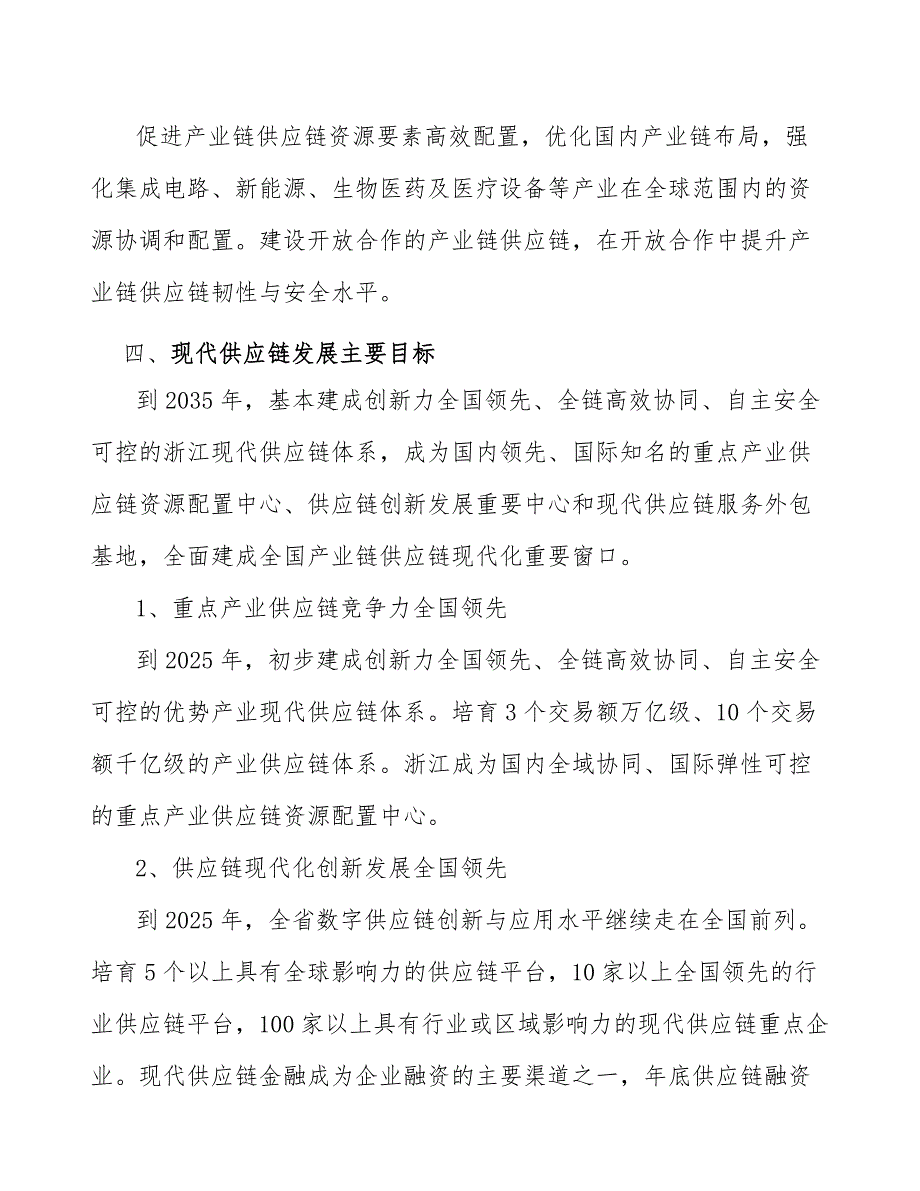 促进产业链供应链资源要素高效配置，优化国内产业链布局，强
化集成电路、新能源、生物医药及医疗设备等产业在全球范围内的资
源协调和配置。建设开放合作的产业链供应链，在开放合作中提升产
业链供应链韧性与安全水平。
四、现代供应链发展主要目标
到 2035 年，基本建成创新力全国领先、全链高效协同、自主安全
可控的浙江现代供应链体系，成为国内领先、国际知名的重点产业供
应链资源配置中心、供应链创新发展重要中心和现代供应链服务外包
基地，全面建成全国产业链供应链现代化重要窗口。
1、重点产业供应链竞争力全国领先
到 2025 年，初步建成创新力全国领先、全链高效协同、自主安全
可控的优势产业现代供应链体系。培育 3 个交易额万亿级、10 个交易
额千亿级的产业供应链体系。浙江成为国内全域协同、国际弹性可控
的重点产业供应链资源配置中心。
2、供应链现代化创新发展全国领先
到 2025 年，全省数字供应链创新与应用水平继续走在全国前列。
培育 5 个以上具有全球影响力的供应链平台，10 家以上全国领先的行
业供应链平台，100 家以上具有行业或区域影响力的现代供应链重点企
业。现代供应链金融成为企业融资的主要渠道之一，年底供应链融资